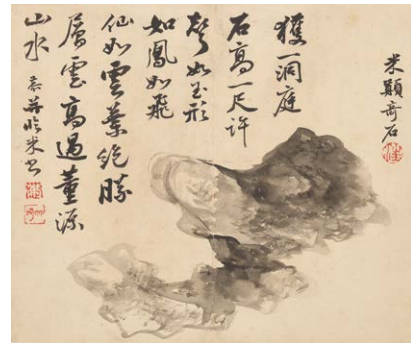 米顛奇石
獲一洞庭
石高一尺許
聲如玉形
如鳳如飛
仙如雲葉絕勝
層雲高過董源
山水
并臨米書